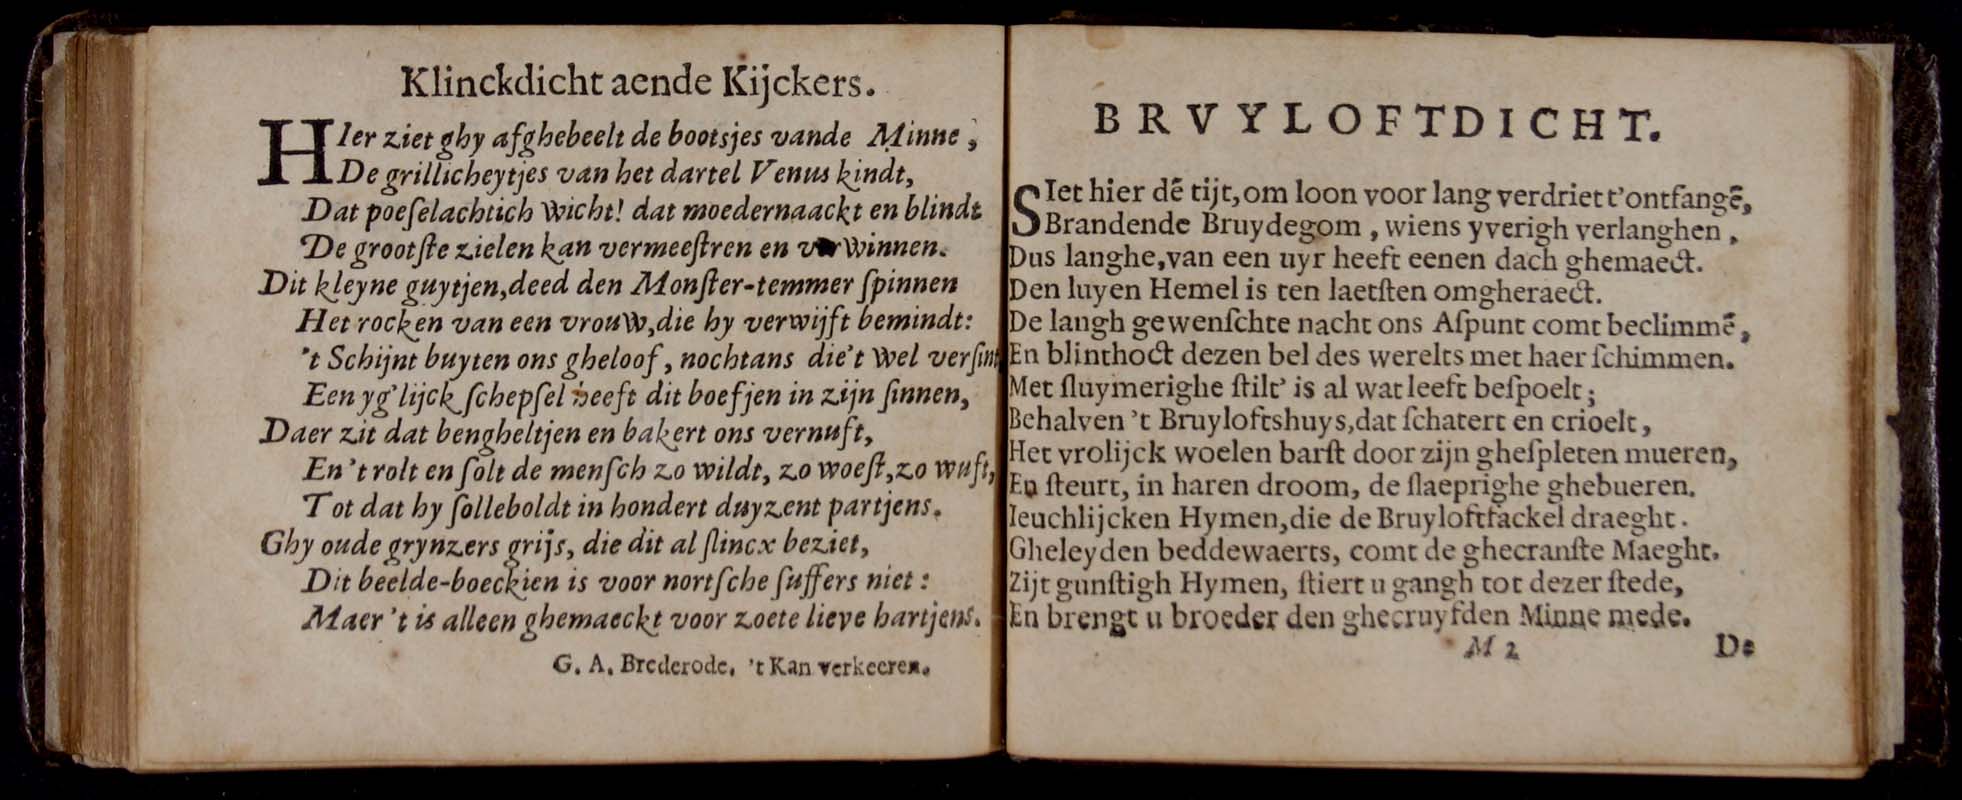 Klinckdicht aende Kijckers.
HIer ziet ghy afghebeelt de bootsjes vande Minne,
De grillicheytjes van het dartel Venus kindt,
Dat poeſelachtich wicht! dat moedernaackt en blindt
De grootſte zielen kan vermeeſtren en verwinnen.
Dit kleyne guytjen, deed den Monſter-temmer ſpinnen
Het rocken van een vrouw, die hy verwijft bemindt:
't Schijnt buyten ons gheloof, nochtans die't wel verſint
Een yg'lijck ſchepſel heeft dit boefjen in zijn ſinnen,
Daer zit dat bengheltjen en bakert ons vernuft,
En 't rolt en ſolt de menſch zo wildt, zo woeſt, zo wuft,
Tot dat hy ſolleboldt in hondert duyzent partjens.
Ghy oude grynzers grijs, die dit al ſlincx beziet,
Dit beelde-boeckien is voor nortſche ſuffers niet:
Maer 't is alleen ghemaeckt voor zoete lieve hartjens.
G. A. Brederode. 't Kan verkeeren.
BRVYLOFTDICHT.
SIet hier dē tijt, om loon voor lang verdriet t'ontfangē,
Brandende Bruydegom, wiens yverigh verlanghen,
Dus langhe, van een uyr heeft eenen dach ghemaect.
Den luyen Hemel is ten laetſten omgheraect.
De langh gewenſchte nacht ons Aſpunt comt beclimmē,
En blinthoct dezen bel des werelts met haer ſchimmen.
Met ſluymerighe ſtilt' is al wat leeft beſpoelt;
Behalven 't Bruyloftshuys, dat ſchatert en crioelt,
Het vrolijck woelen barſt door zijn gheſpleten mueren,
En ſteurt, in haren droom, de ſlaeprighe ghebueren.
Ieuchlijcken Hymen, die de Bruyloftfackel draeght.
Gheleyden beddewaerts, comt de ghecranſte Maeght.
Zijt gunſtigh Hymen, ſtiert u gangh tot dezer ſtede,
En brengt u broeder den ghecruyfden Minne mede.
M 2
De